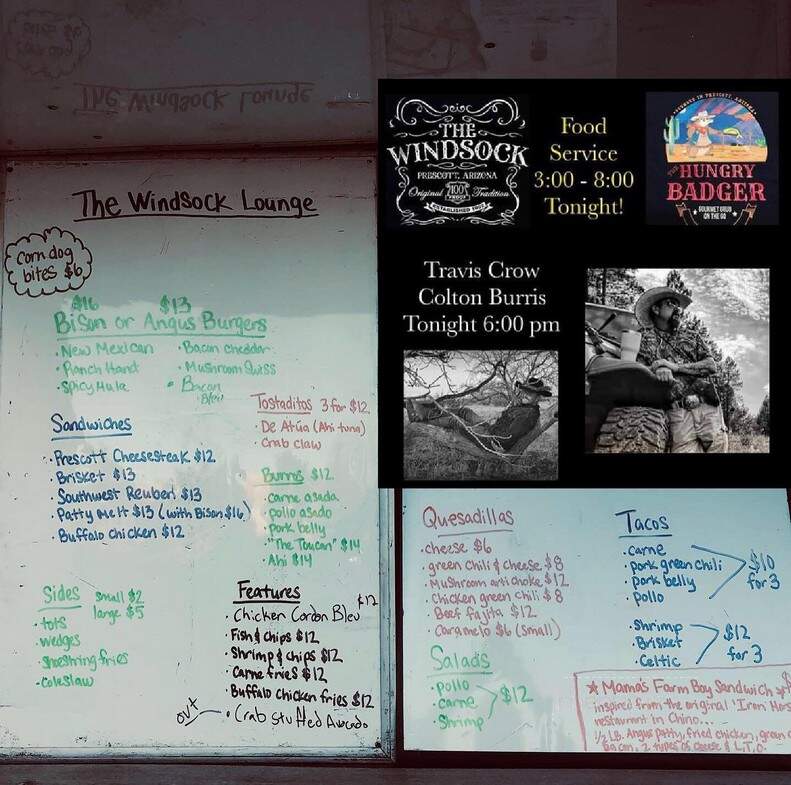 The Windsock Lounge
corn dog
bites $6
$16 $13
Bison or Angus Burgers
• New Mexican
• Ranch Hand
• Spicy Hula
• Bacon cheddar
• Mushroom Swiss
• Bacon
Bleu
Sandwiches
• Prescott Cheesesteak $12
• Brisket $13
• Southwest Reuben $13
• Patty Melt $13 (with Bison $16)
• Buffalo chicken $12
Tostaditos 3 for $12
• De Atún (Ahi tuna)
• Crab claw
Burros $12
• carne asada
• pollo asado
• pork belly
• "The Toucan" $14
• Ahi $14
Sides small $2
large $5
• tots
• wedges
• shoestring fries
• coleslaw
Features
• Chicken Cordon Bleu $12
• Fish & chips $12
• Shrimp & chips $12
• Carne fries $12
• Buffalo chicken fries $12
out • Crab stuffed Avocado
THE
WINDSOCK
PRESCOTT, ARIZONA
Original 100 PROOF Tradition
ESTABLISHED
Food
Service
3:00 - 8:00
Tonight!
FOUNDED IN PRESCOTT, ARIZONA
THE
HUNGRY
BADGER
GOURMET GRUB
ON THE GO
Travis Crow
Colton Burris
Tonight 6:00 pm
Quesadillas
• cheese $6
• green chili & cheese $8
• Mushroom artichoke $12
• Chicken green chili $8
• Beef fajita $12
• Caramelo $6 (small)
Salads
• pollo
• carne $12
• Shrimp
Tacos
• carne
• pork green chili
• pork belly
• pollo
$10
for 3
• shrimp
• Brisket
• Celtic
$12
for 3
★ Mama's Farm Boy Sandwich
inspired from the original "Iron Hors
restaurant in Chino...
1/2 LB. Angus patty, fried chicken, green c
bacon, 2 types of cheese & L.T.O.